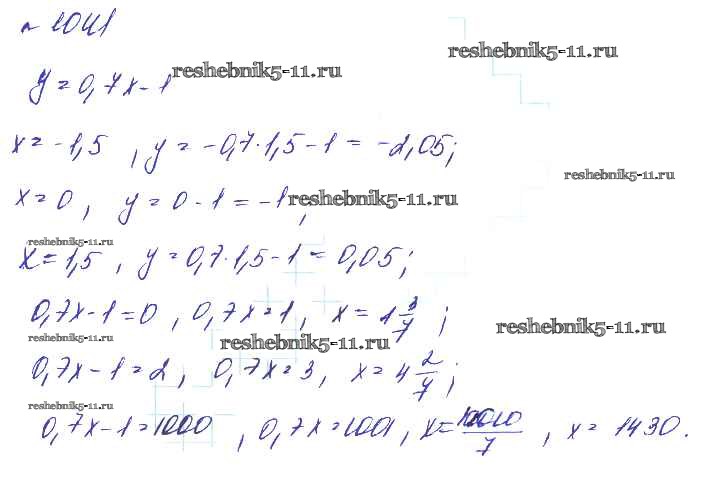 № 1041
reshebnik5-11.ru
y = 0,7x - 1 reshebnik5-11.ru
x = -1,5 , y = -0,7·1,5 - 1 = -2,05;
reshebnik5-11.ru
x = 0 , y = 0 - 1 = -1 ; reshebnik5-11.ru
reshebnik5-11.ru
x = 1,5 , y = 0,7·1,5 - 1 = 0,05 ;
0,7x - 1 = 0 , 0,7x = 1 , x = 1 3/7 ;
reshebnik5-11.ru reshebnik5-11.ru reshebnik5-11.ru
0,7x - 1 = 2 , 0,7x = 3 , x = 4 2/7 ;
reshebnik5-11.ru
0,7x - 1 = 1000 , 0,7x = 1001 , x = 10010/7 , x = 1430.